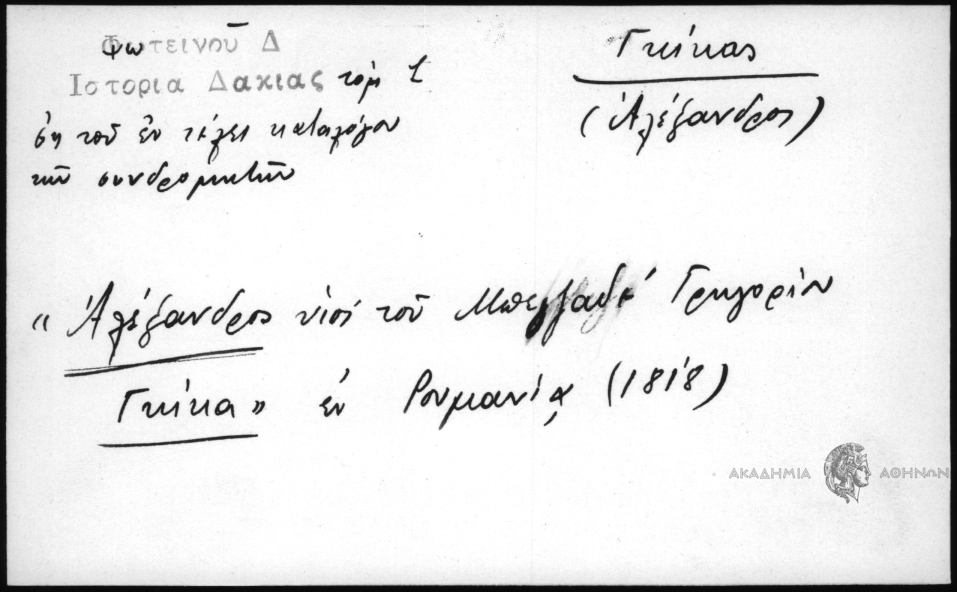 Φωτεινοῦ Δ
Ιστορια Δακιας τομ 1
ἐν τοῦ ἐν τέλει καταλόγου
τῶν συνδρομητῶν
Γκίκας
(Ἀλέξανδρος)
« Ἀλέξανδρος υἱὸς τοῦ Μπεϊζαδέ Γρηγορίου
Γκίκα » ἐν Ρουμανίᾳ (1818)
ΑΚΑΔΗΜΙΑ ΑΘΗΝΩΝ